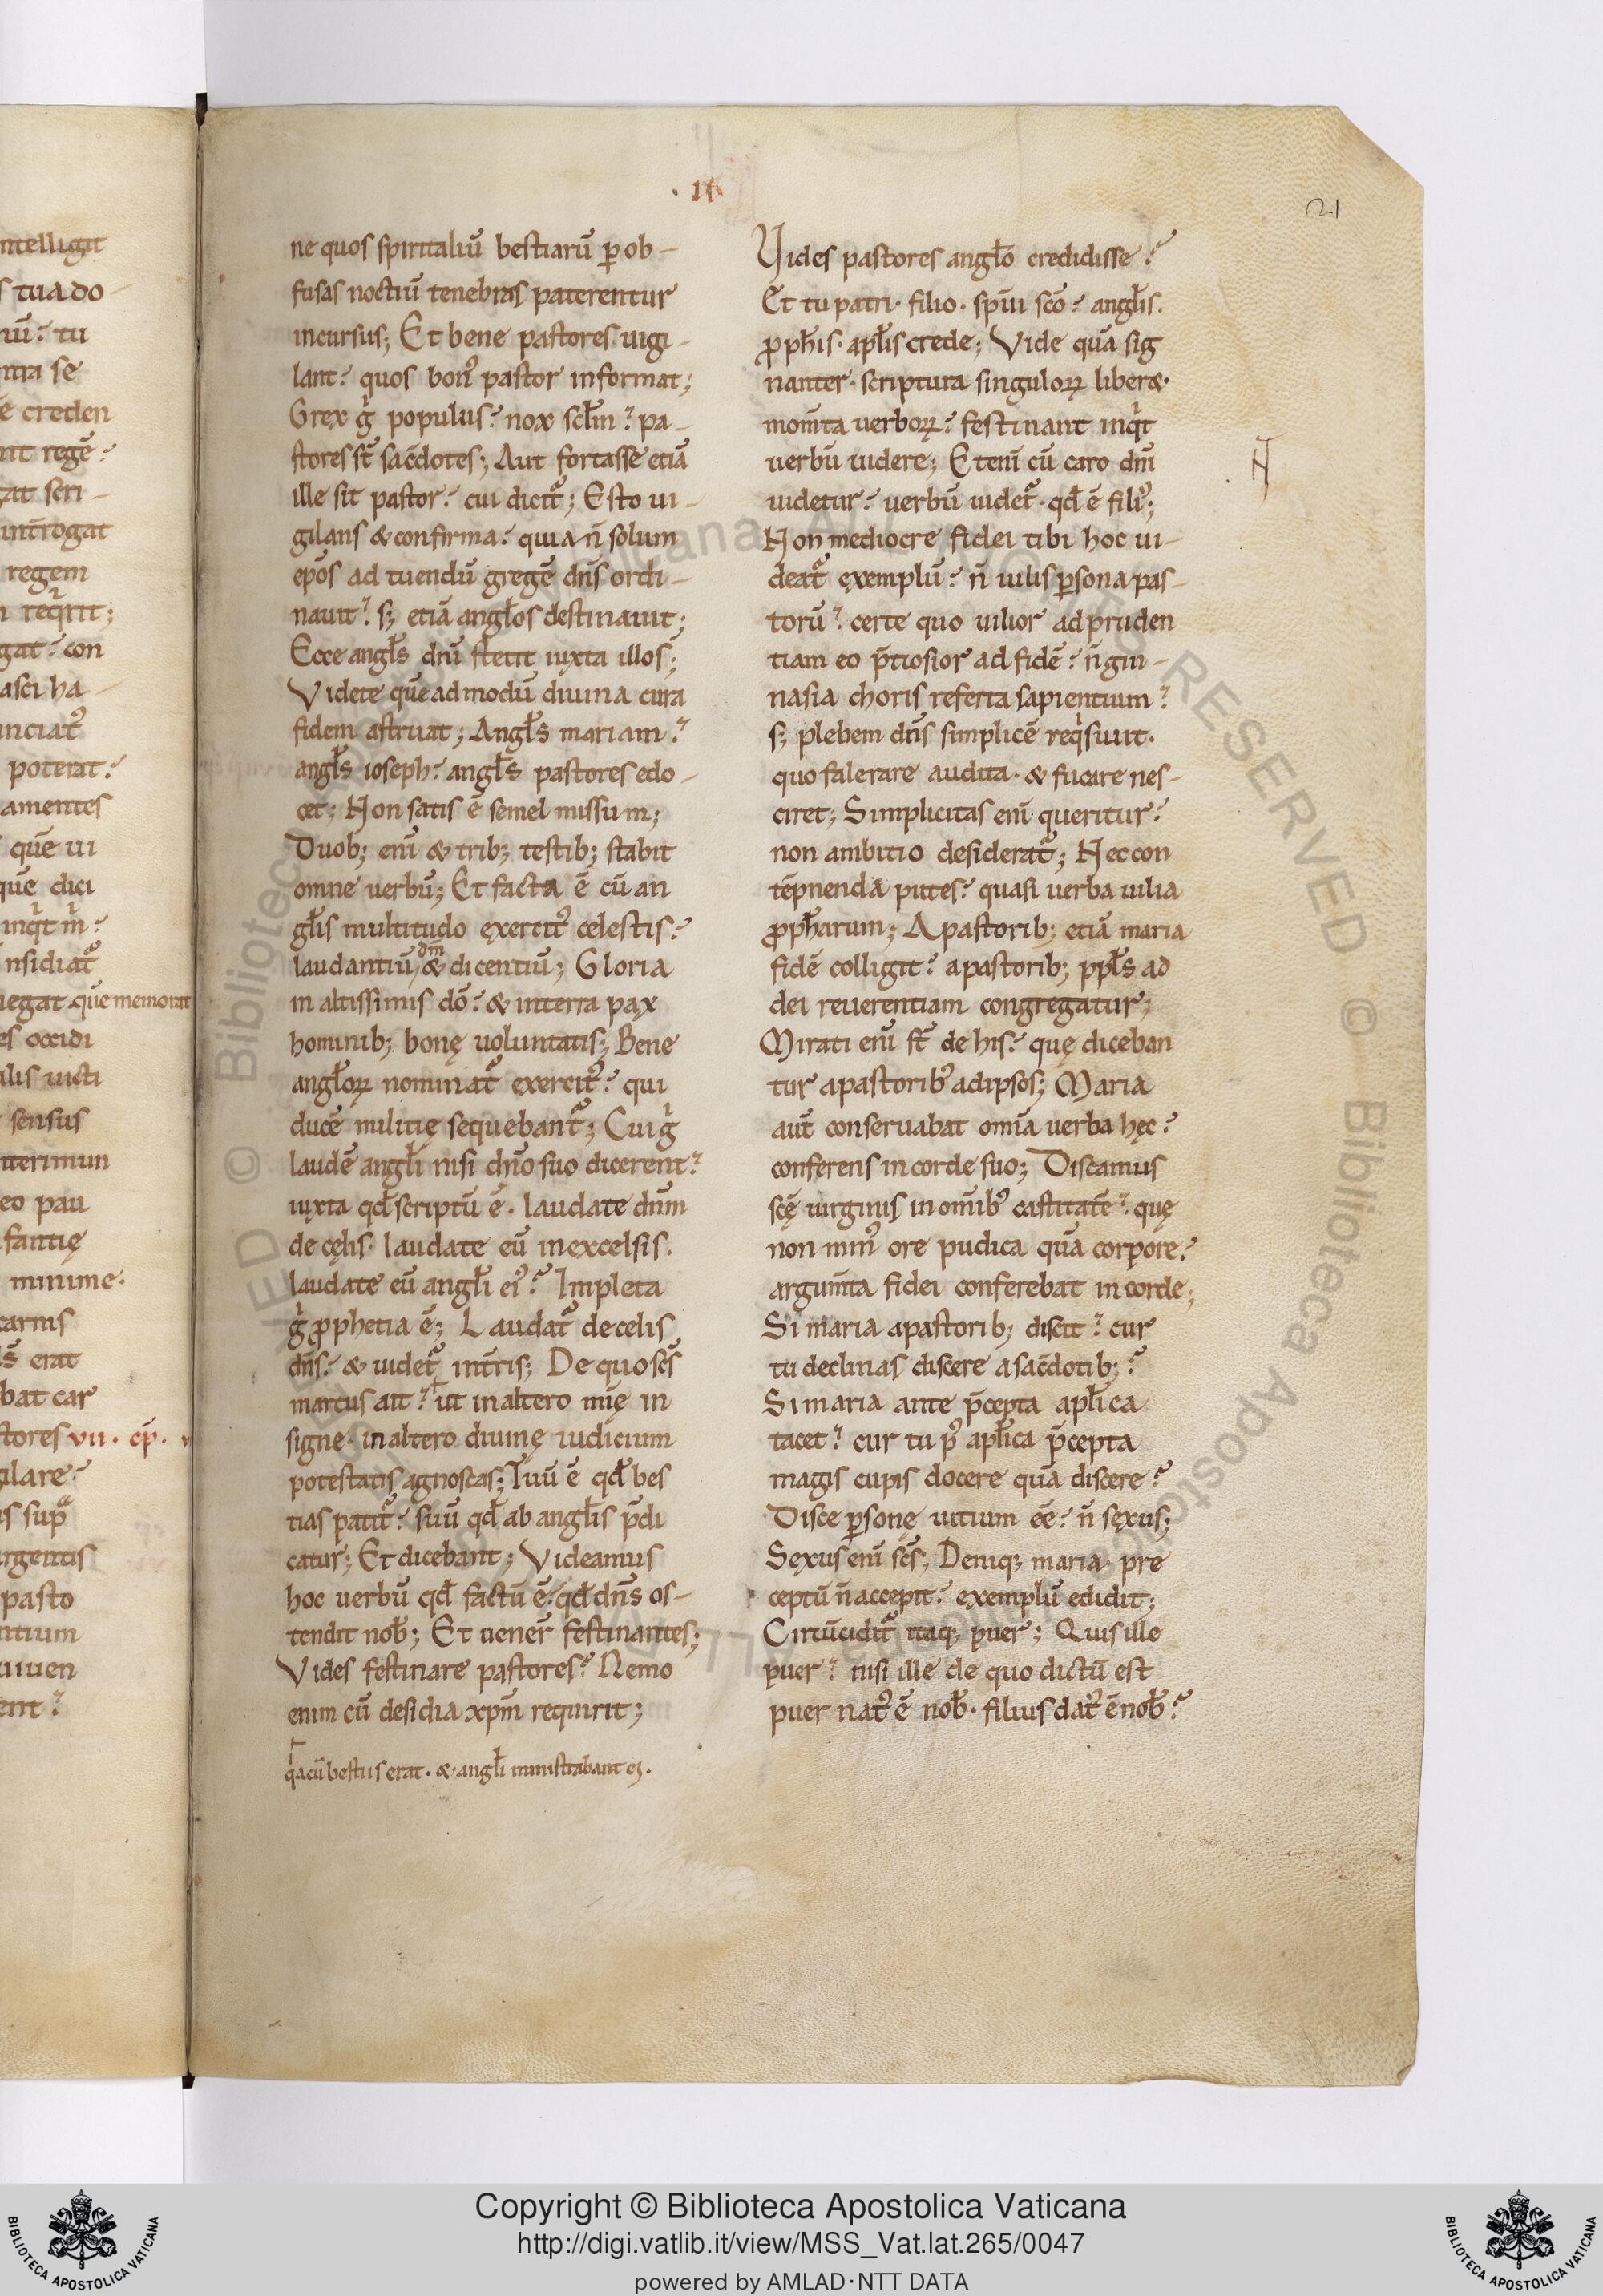 · II ·
21
ne quos spiritaliū bestiarū ꝑ ob-
fusas noctiū tenebras paterentur
incursus; Et bene pastores uigi-
lant? quos bonꝰ pastor informat;
Grex g̊ populus? nox sc̄lm? pa-
stores st̄ sac̄dotes; Aut fortasse etiā
ille sit pastor? cui dicit᷑; Esto ui-
gilans & confirma? quia n̄ solum
ep̄os ad tuendū gregē dn̄s ordi-
nauit? s; etiā angl̄os destinauit;
Ecce angl̄s dn̄i stetit iuxta illos;
Videte quēadmodū diuina cura
fidem astruat; Angl̄s mariam?
angl̄s ioseph? angl̄s pastores edo-
cet; Non satis ē semel missum;
Duob; enī & trib; testib; stabit
omne uerbū; Et facta ē cū an
gl̄is multitudo exercitꝰ celestis?
laudantiū dm̄ & dicentiū; Gloria
in altissimis dō? & in terra pax
hominib; bonę uoluntatis; Bene
angl̄oꝝ nominat᷑ exercitꝰ? qui
ducē militię sequebant᷑; Cui g̊
laudē angl̄i nisi dn̄o suo dicerent?
iuxta qđ scriptū ē. laudate dn̄m
de cęlis. laudate eū in excelsis.
laudate eū angl̄i eiꝰ? Impleta
g̊ ꝓphetia ē; Laudat᷑ de celis
dn̄s? & uidet᷑ in tr̄is; De quo sc̄s
marcus ait? ut in altero mīę in
signe. in altero diuinę iudicium
potestatis agnoscas; Tuū ē qđ bes
tias patit᷑? suū qđ ab angl̄is p̄di
catur; Et dicebant; Videamus
hoc uerbū qđ factū ē? qđ dn̄s os-
tendit nob̄; Et uener̄ festinantes;
Vides festinare pastores? Nemo
enim cū desidia xpm̄ requirit;
q̊a cū bestiis erat. & angl̄i ministrabant ei.
Vides pastores angl̄o credidisse?
Et tu patri. filio. spūi sc̄o? angl̄is.
ꝓph̄is. apl̄is crede; Vide quā sig
nanter. scriptura singuloꝝ liberæ.
mom̄ta uerboꝝ? festinant inq̊t
uerbū uidere; Etenī cū caro dn̄i
uidetur? uerbū uidet᷑. qđ ē filiꝰ;
Non mediocre fidei tibi hoc ui-
deat᷑ exemplū? n̄ uilis ꝑsona pas-
torū? certe quo uilior ad pruden
tiam eo p̄tiosior ad fidē? n̄ gim-
nasia choris referta sapientium?
s; plebem dn̄s simplicē req̊siuit.
quo falerare audita. & fucare nes-
ciret; Simplicitas enī queritur?
non ambitio desiderat᷑; Nec con
tēpnenda putes? quasi uerba uilia
ꝓph̄arum; A pastorib; etiā maria
fidē colligit? a pastorib; ppl̄s ad
dei reuerentiam congregatur;
Mirati enī st̄ de his? quę diceban
tur a pastoribꝰ ad ipsos; Maria
aut̄ conseruabat omīa uerba hęc?
conferens in corde suo; Discamus
scę̄ uirginis in omībꝰ castitatē? quę
non minꝰ ore pudica quā corpore?
argum̄ta fidei conferebat in corde;
Si maria a pastorib; discit? cur
tu declinas discere a sac̄dotib;?
Si maria ante p̄cepta apl̄ica
tacet? cur tu pꝰ apl̄ica p̄cepta
magis cupis docere quā discere?
Disce ꝑsonę uitium ēē? n̄ sexus;
Sexus enī sc̄s; Deniq; maria. pre
ceptū n̄ accepit? exemplū edidit;
Circūcidit᷑ itaq; puer; Quis ille
puer? nisi ille de quo dictū est
puer natꝰ ē nob̄. filius datꝰ ē nob̄?
Copyright © Biblioteca Apostolica Vaticana
http://digi.vatlib.it/view/MSS_Vat.lat.265/0047
powered by AMLAD·NTT DATA
BIBLIOTECA APOSTOLICA VATICANA
BIBLIOTECA APOSTOLICA VATICANA